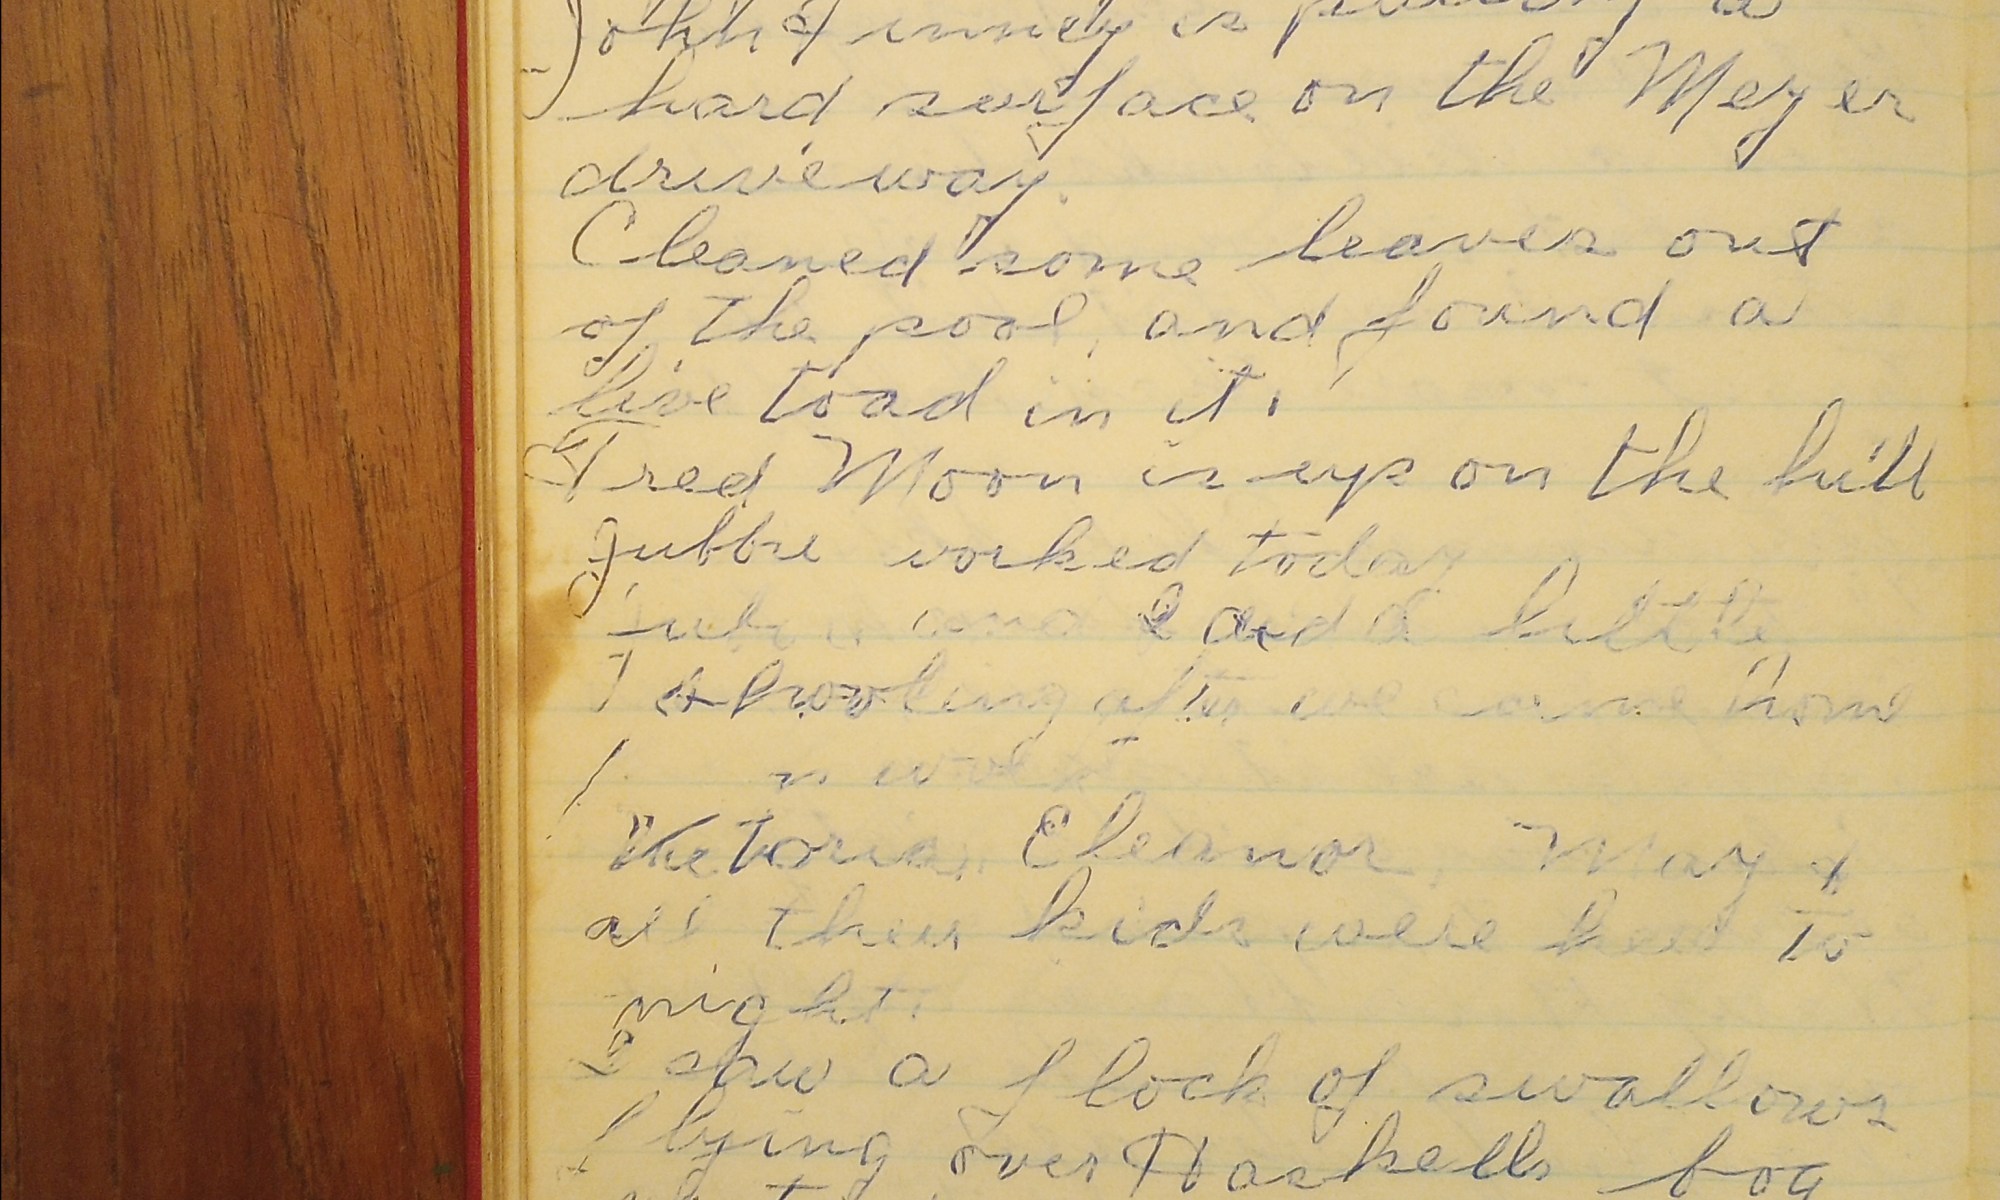 John Finney is putting a
hard surface on the Meyer
driveway.
Cleaned some leaves out
of the pool, and found a
live toad in it.
Fred Moon is up on the hill
worked today
and I did a little
after we came home
Victoria, Eleanor, May &
all their kids were here to
night.
I saw a flock of swallows
flying over Haskells bog